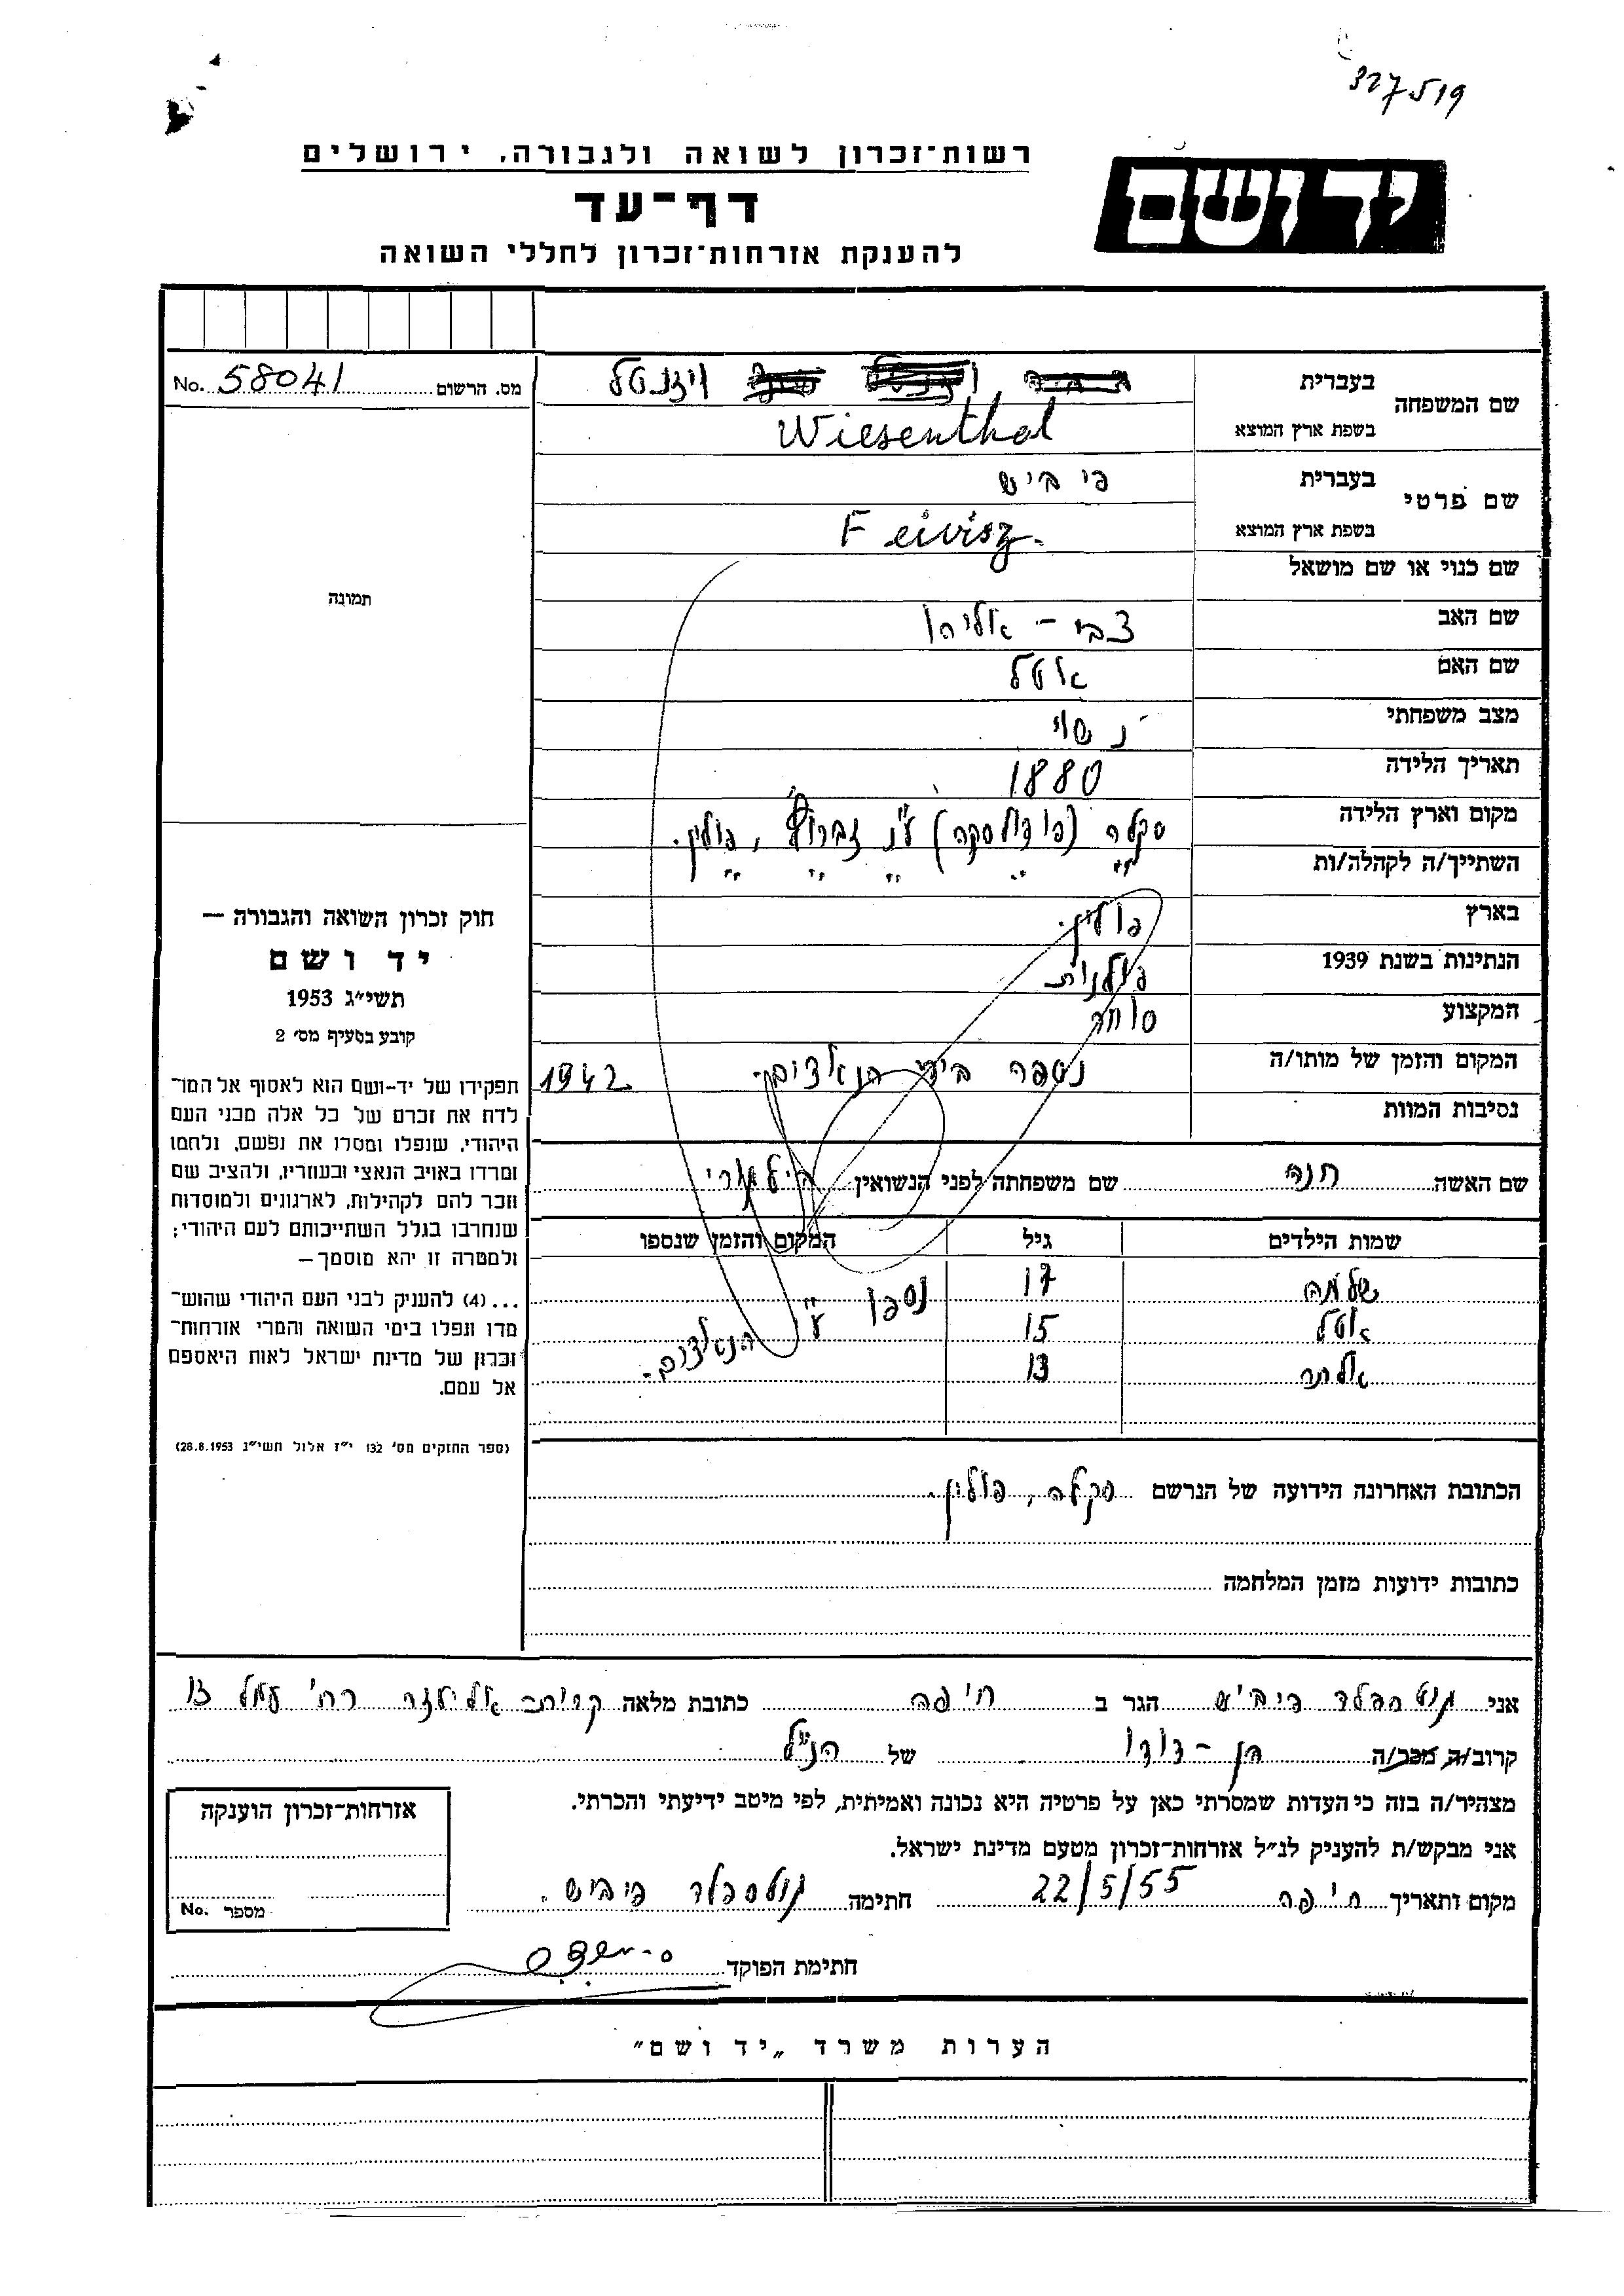 327519
יד ושם
רשות־זכרון לשואה ולגבורה, ירושלים
דף־עד
להענקת אזרחות־זכרון לחללי השואה
מס. הרשום No. 58041
שם המשפחה בעברית ויזנטל
בשפת ארץ המוצא Wiesenthal
שם פרטי בעברית פיביש
בשפת ארץ המוצא Feivisz.
שם כנוי או שם מושאל
שם האב צבי - אליהו
שם האם אטל
מצב משפחתי נשוי
תאריך הלידה 1880
מקום וארץ הלידה סקלה (פודולסקה) ע"נ זברוץ, פולין.
השתייך/ה לקהלה/ות " " " " "
בארץ פולין.
הנתינות בשנת 1939 פולנית
המקצוע סוחר
המקום והזמן של מותו/ה נספה בידי הנאצים. 1942
נסיבות המוות
שם האשה חנה שם משפחתה לפני הנשואין
שמות הילדים גיל המקום והזמן שנספו
שלמה 17 נספו ע"י הנאצים.
אטל 15
13
הכתובת האחרונה הידועה של הנרשם סקלה, פולין.
כתובות ידועות מזמן המלחמה
תמונה
חוק זכרון השואה והגבורה —
יד ושם
תשי״ג 1953
קובע בסעיף מס׳ 2
תפקידו של יד-ושם הוא לאסוף אל המו־
לדת את זכרם של כל אלה מבני העם
היהודי, שנפלו ומסרו את נפשם, נלחמו
ומרדו באויב הנאצי ובעוזריו, ולהציב שם
וזכר להם לקהילות, לארגונים ולמוסדות
שנחרבו בגלל השתייכותם לעם היהודי;
ולמטרה זו יהא מוסמך—
...(4) להעניק לבני העם היהודי שהוש־
מדו ונפלו בימי השואה והמרי אזרחות־
זכרון של מדינת ישראל לאות היאספם
אל עמם.
(ספר החוקים מס׳ 132 י״ז אלול תשי״ג 28.8.1953)
אני פיביש הגר ב חיפה כתובת מלאה קרית אליעזר רח' עמל 13
קרוב/ה מכר/ה בן - דודו של הנ"ל
מצהיר/ה בזה כי העדות שמסרתי כאן על פרטיה היא נכונה ואמיתית, לפי מיטב ידיעתי והכרתי.
אני מבקש/ת להעניק לנ״ל אזרחות־זכרון מטעם מדינת ישראל.
מקום ותאריך חיפה 22/5/55 חתימה פיביש.
חתימת הפוקד
אזרחות־זכרון הוענקה
מספר No.
הערות משרד „יד ושם״